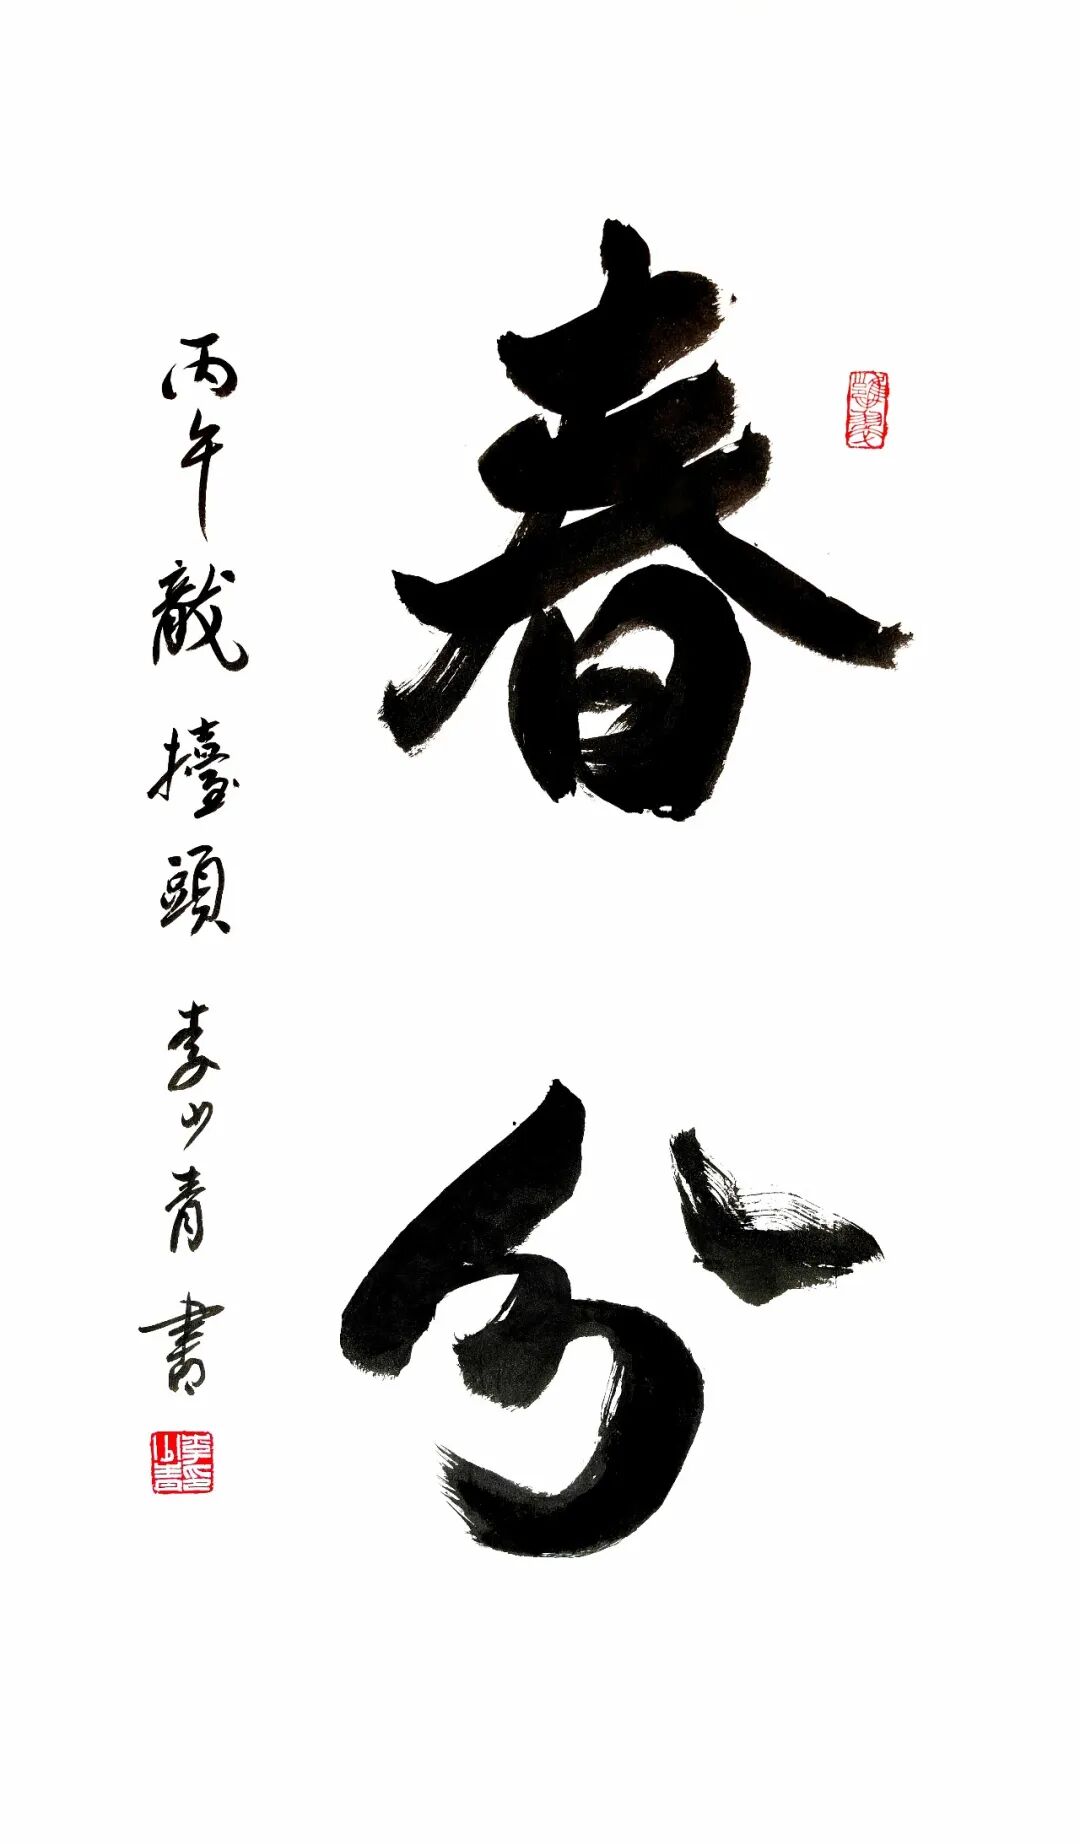 春分
丙午龍擡頭 李山青書